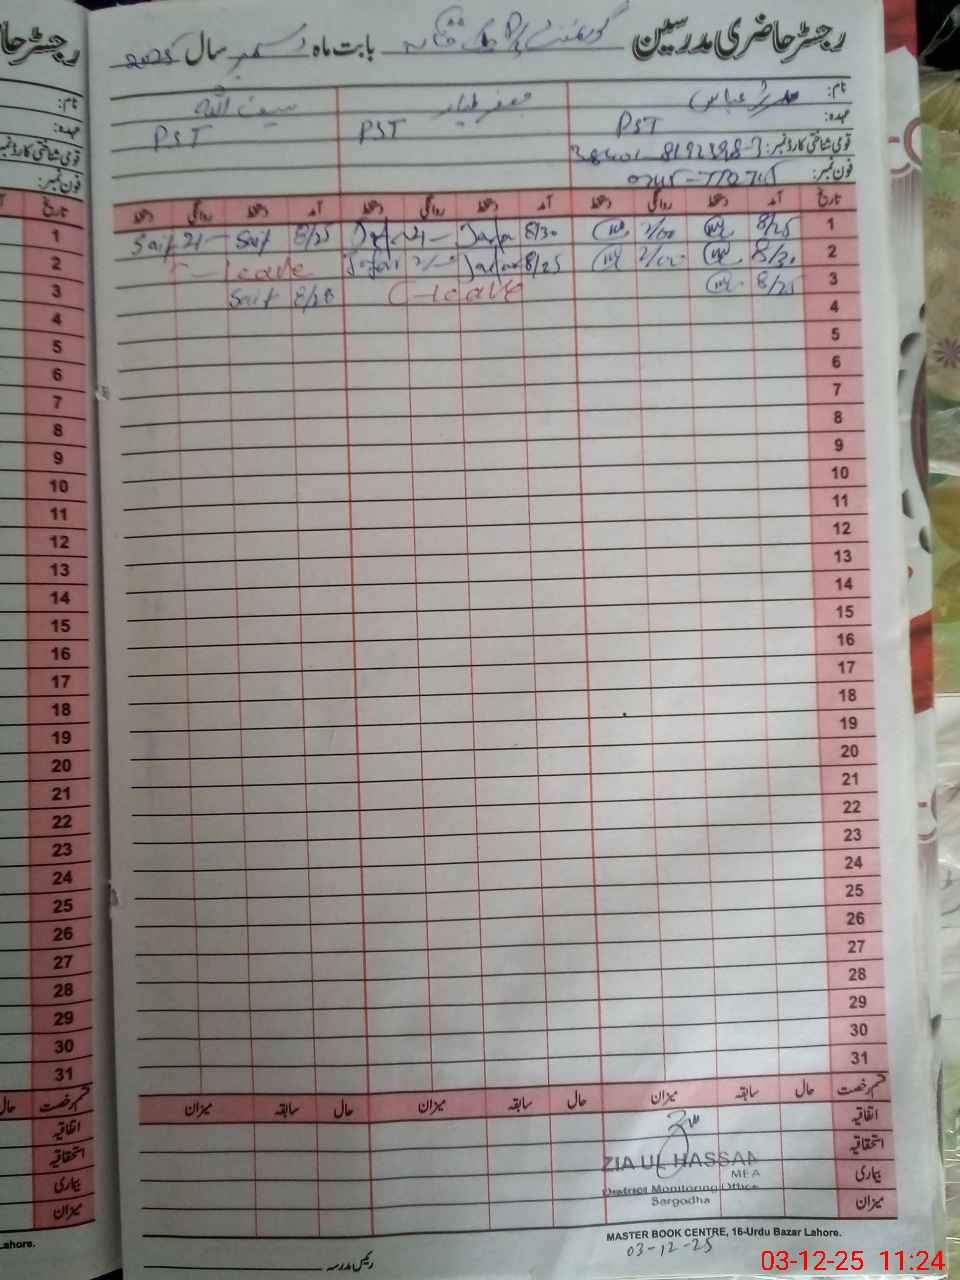 رجسٹر حاضری مدرسین گورنمنٹ بابت ماہ دسمبر سال 2025
نام: عباس جعفر طیار سیف اللہ
عہدہ: PST PST PST
قومی شناختی کارڈ نمبر:
فون نمبر:
تاریخ آمد دستخط روانگی دستخط آمد دستخط روانگی دستخط آمد دستخط روانگی دستخط
1 8/25 2/00 8/30 Jafar 8/25 Saif 2/- Saif
2 8/30 2/00 8/25 Jafar 2/- Jafar C-Leave
3 8/25 C-leave 8/28 Saif
4
5
6
7
8
9
10
11
12
13
14
15
16
17
18
19
20
21
22
23
24
25
26
27
28
29
30
31
قسم رخصت حال سابقہ میزان حال سابقہ میزان حال سابقہ میزان
اتفاقیہ
استحقاقیہ
بیماری
میزان
ZIA UL HASSAN
MEA
District Monitoring Office
Sargodha
MASTER BOOK CENTRE, 16-Urdu Bazar Lahore.
03-12-25
رئیس مدرسہ
Lahore.
03-12-25 11:24